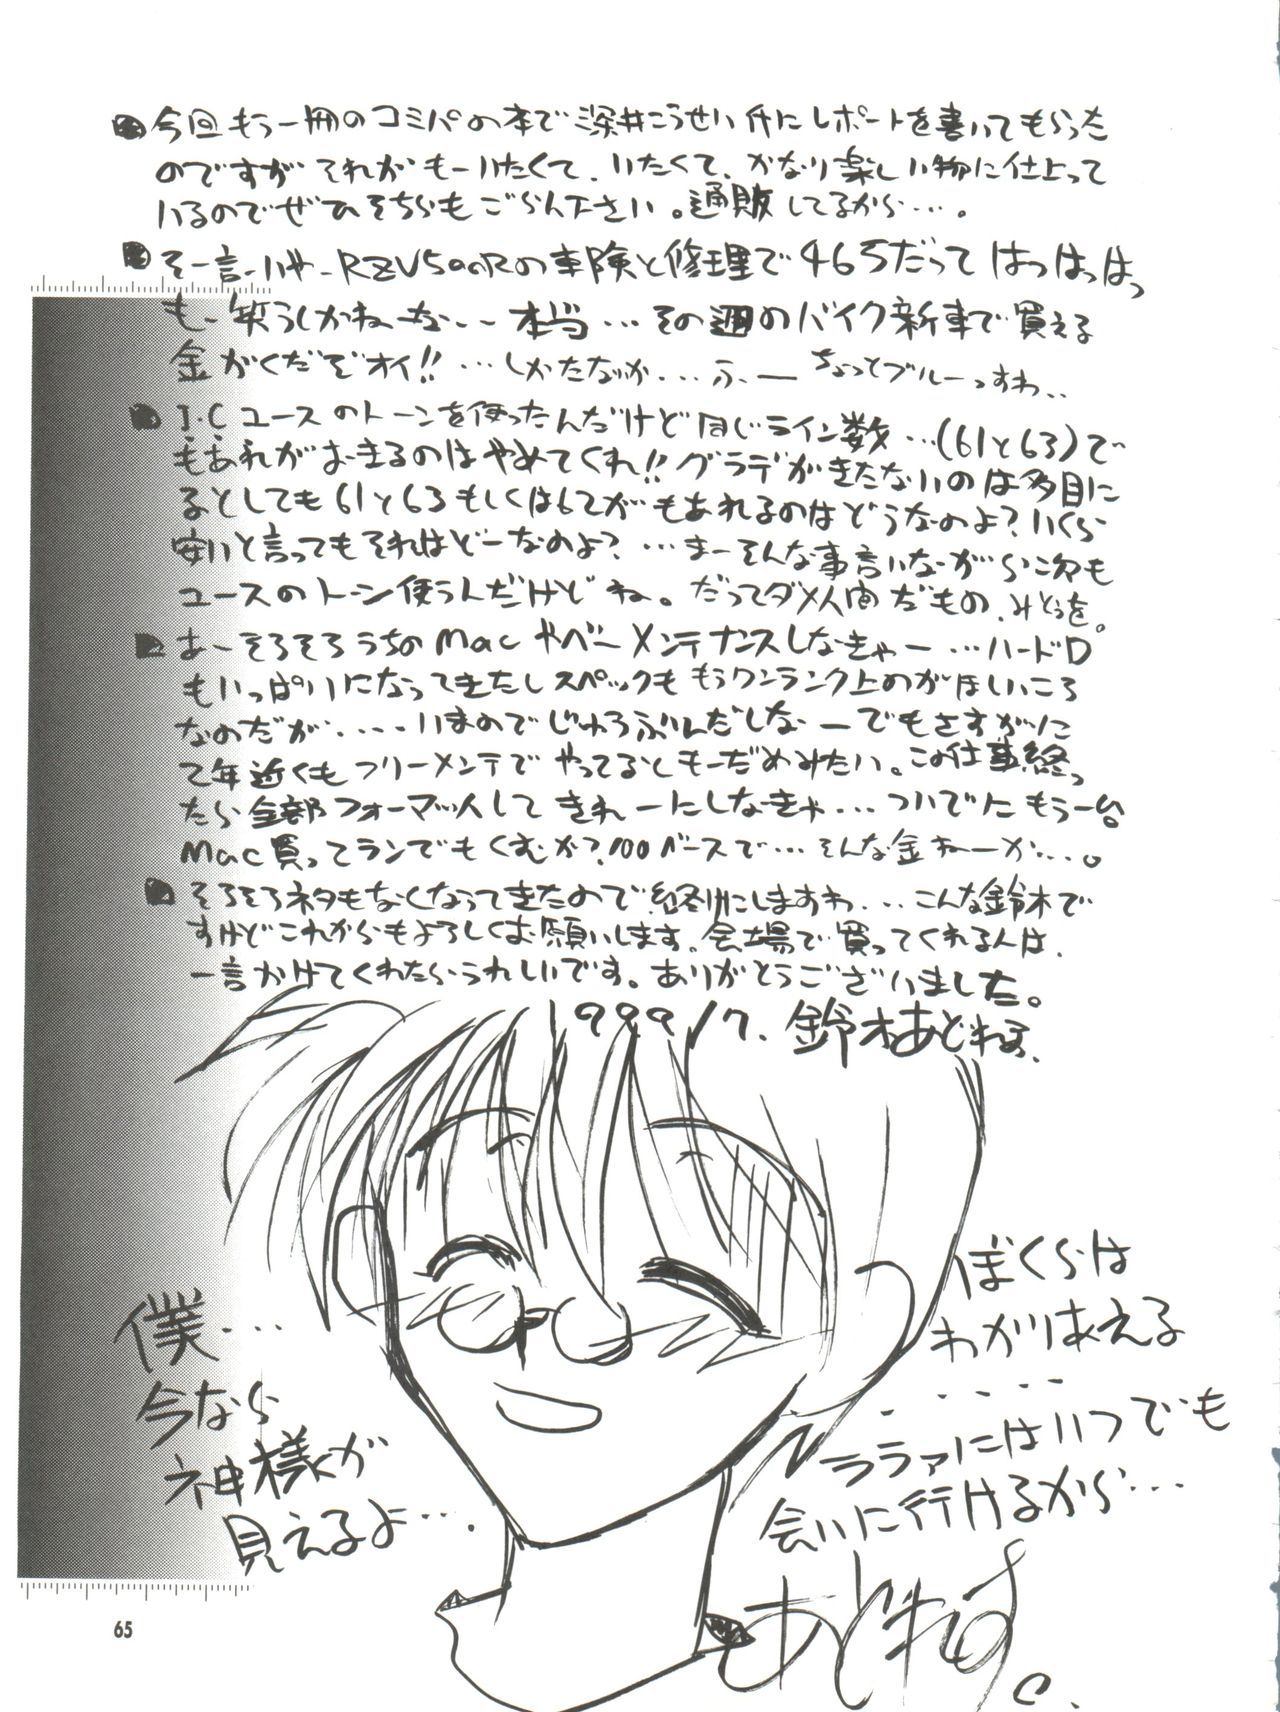 今回もう一冊のコミパの本で深井こうせい件にレポートを書いてもらった
のですが それがもーいたくて、いたくて、かなり楽しい物に仕上って
いるのでぜひそちらもごらん下さい。通販してるから…。
そー言ーいやーRZV500Rの車険と修理で465だって はっはっはっ
もー笑うしかねーなーー本当…その週のバイク新車で買える
金がくだぞオイ!!…しかたなか…ふー ちょっとブルーっすわ..
I・Cユースのトーンを使ったんだけど同じライン数…(61と63)で
もあれがおきるのはやめてくれ!! グラデがきたないのは多目に
るとしても61と63もしくは62がもあれるのはどうなのよ?いくら
安いと言ってもそれはどーなのよ?…まーそんな事言いながらㅤ次も
ユースのトーン使うんだけどね。だってダメ人間だもの、みとぅを。
はーそろそろうちのMacやべーメンテナンスしなきゃー…ハードD
もいっぱいになってきたしスペックももうワンランク上のがほしいころ
なのだが....いまのでじゅうぶんだしなーでもさすがに
2年近くもフリーメンテでやってるしもーだめみたい。この仕事終っ
たら全部フォーマットしてきれーにしなきゃ…ついでにもう一台
Mac買ってランでもくむか?100ベースで…そんな金ねーか…。
そろそろネタもなくなってきたので終りにしますわ...こんな鈴木で
すけどこれからもよろしくお願いします。会場で買ってくれる人は、
一言かけてくれたらうれしいです。ありがとうございました。
1999/7. 鈴木あどねす.
ぼくらは
わかりあえる
.....
ララァにはいつでも
会いに行けるから…
僕...
今なら
神様が
見えるよ…
あどねす。
65